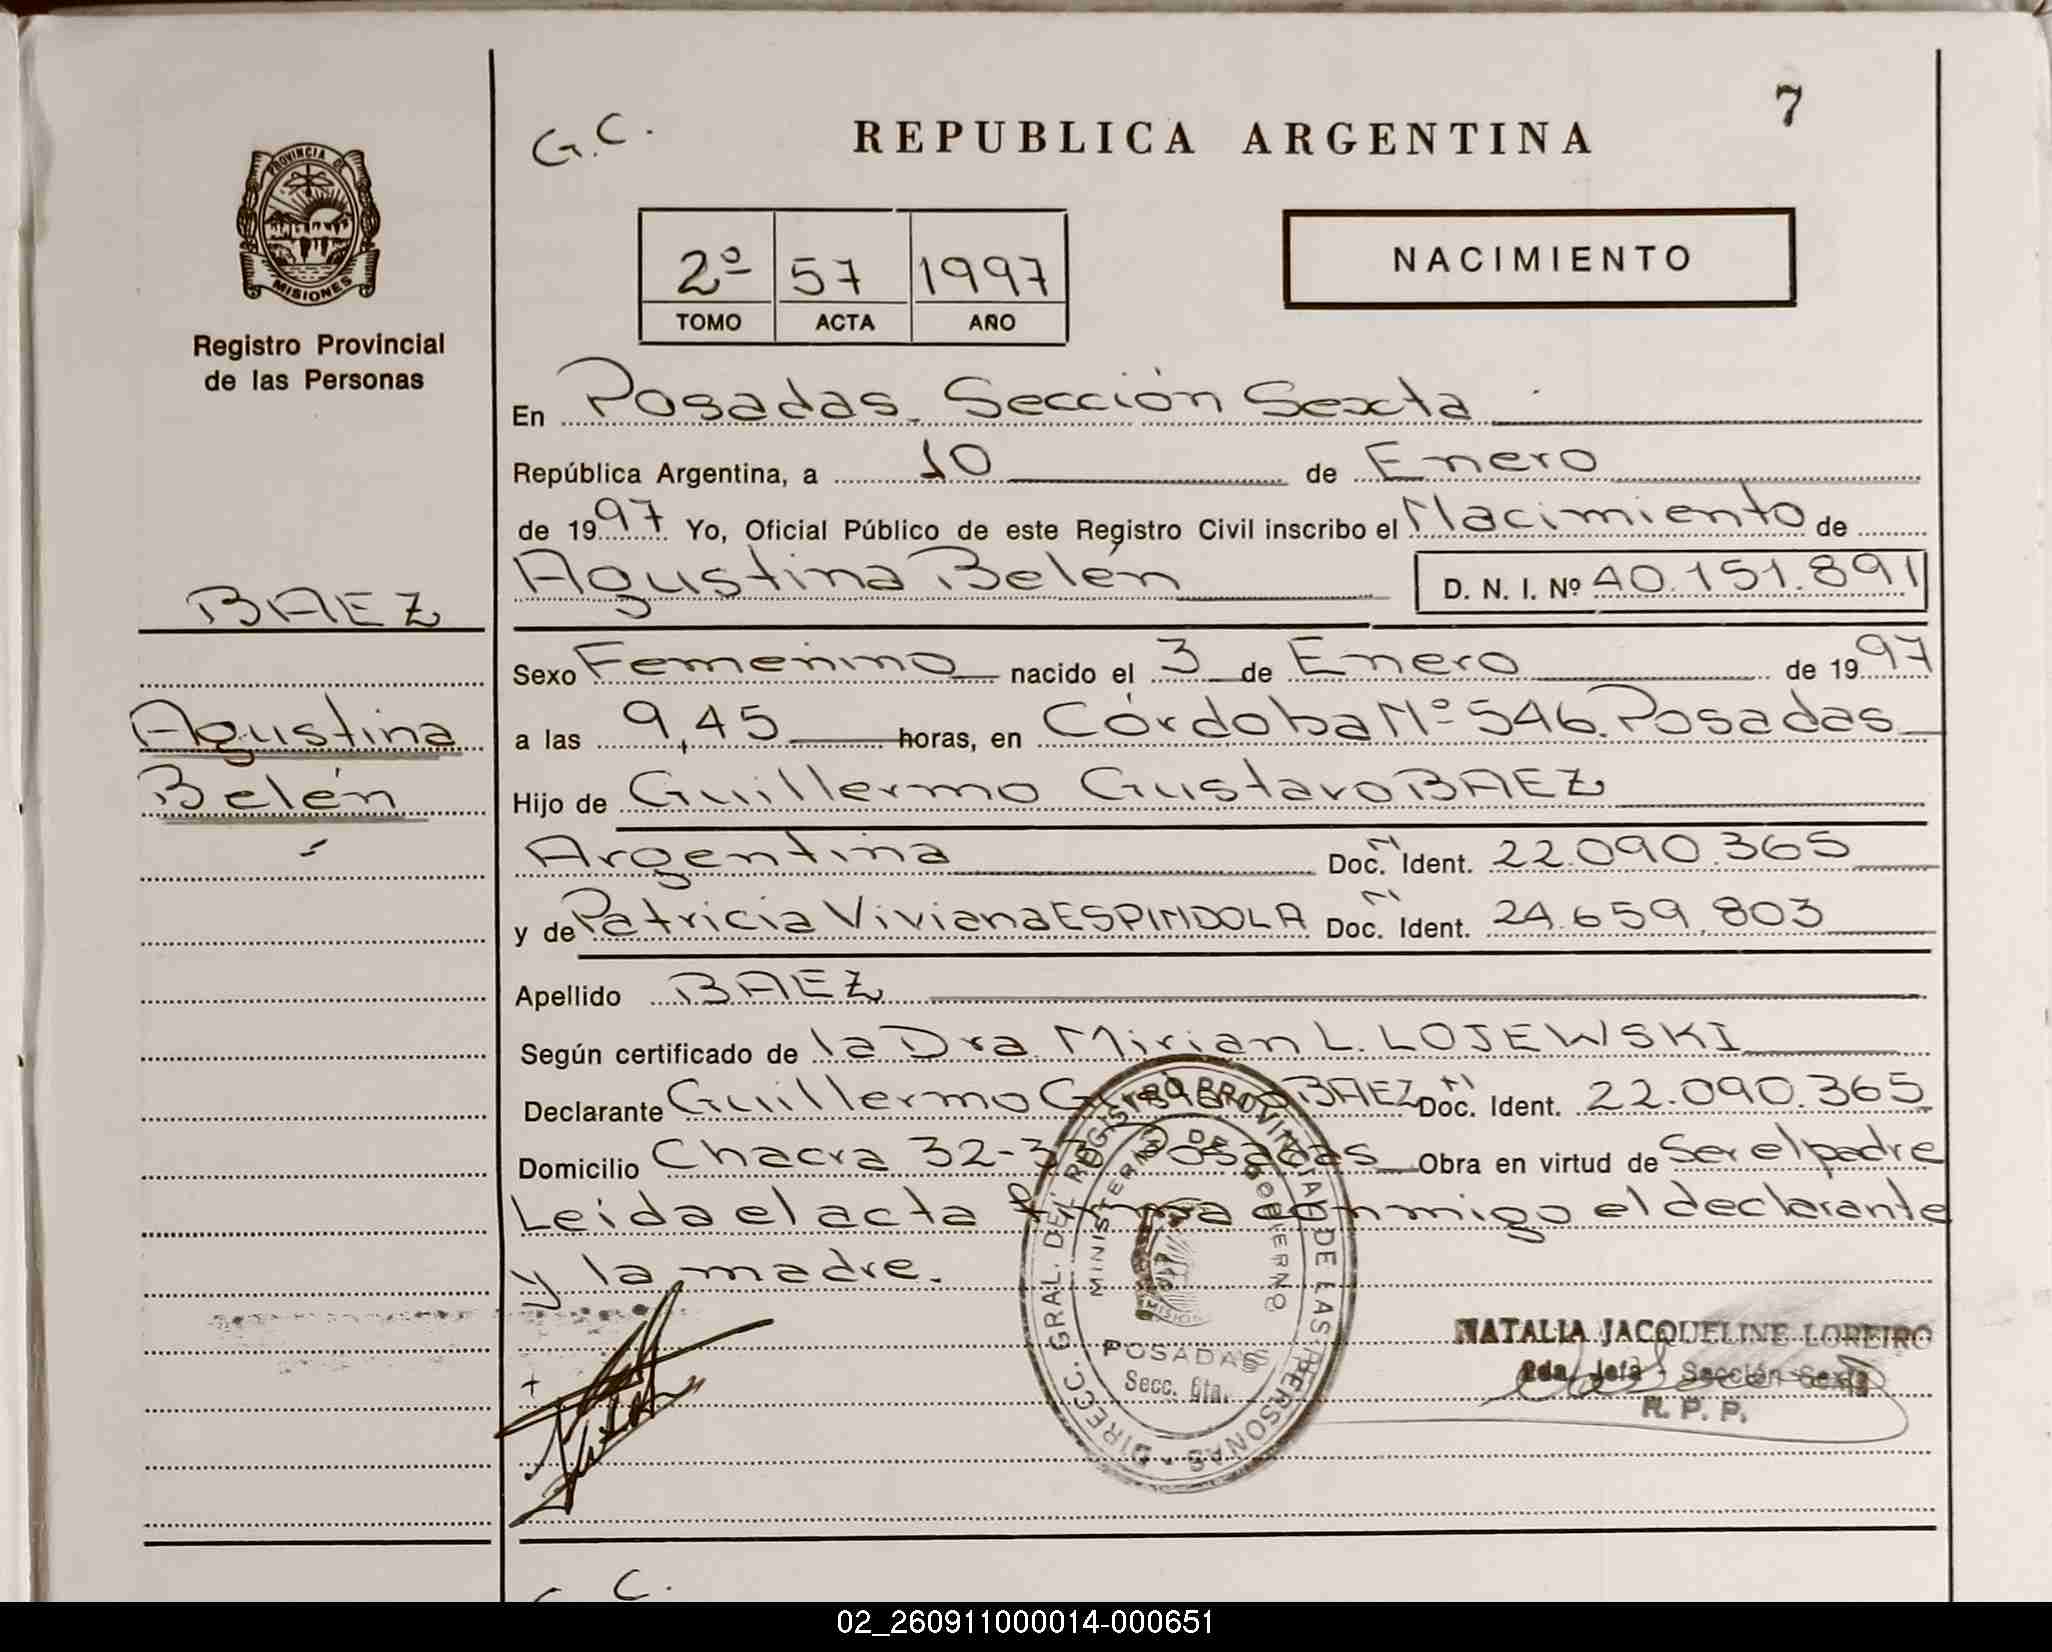 7
G.C.
REPUBLICA ARGENTINA
PROVINCIA DE
MISIONES
Registro Provincial
de las Personas
2º 57 1997
TOMO ACTA AÑO
NACIMIENTO
En Posadas. Sección Sexta
República Argentina, a 10 de Enero
de 1997 Yo, Oficial Público de este Registro Civil inscribo el Nacimiento de
BAEZ
Agustina Belén D. N. I. Nº 40.151.891
Sexo Femenino nacido el 3 de Enero de 1997
Agustina
a las 9,45 horas, en Córdoba Nº 546. Posadas
Belén
Hijo de Guillermo Gustavo BAEZ
Argentina Doc. N Ident. 22.090.365
y de Patricia Viviana ESPINDOLA Doc. N Ident. 24.659.803
Apellido BAEZ
Según certificado de la Dra. Mirian L. LOJEWSKI
Declarante Guillermo Gustavo BAEZ Doc. N Ident. 22.090.365
Domicilio Chacra 32-33 Posadas Obra en virtud de Ser el padre
Leida el acta firma conmigo el declarante
y la madre.
DIRECC. GRAL. DEL REGISTRO PROVINCIAL DE LAS PERSONAS
MINISTERIO DE GOBIERNO
MISIONES
POSADAS
Secc. 6ta.
NATALIA JACQUELINE LOREIRO
2da. Jefa - Sección Sexta
R. P. P.
C.
02_260911000014-000651